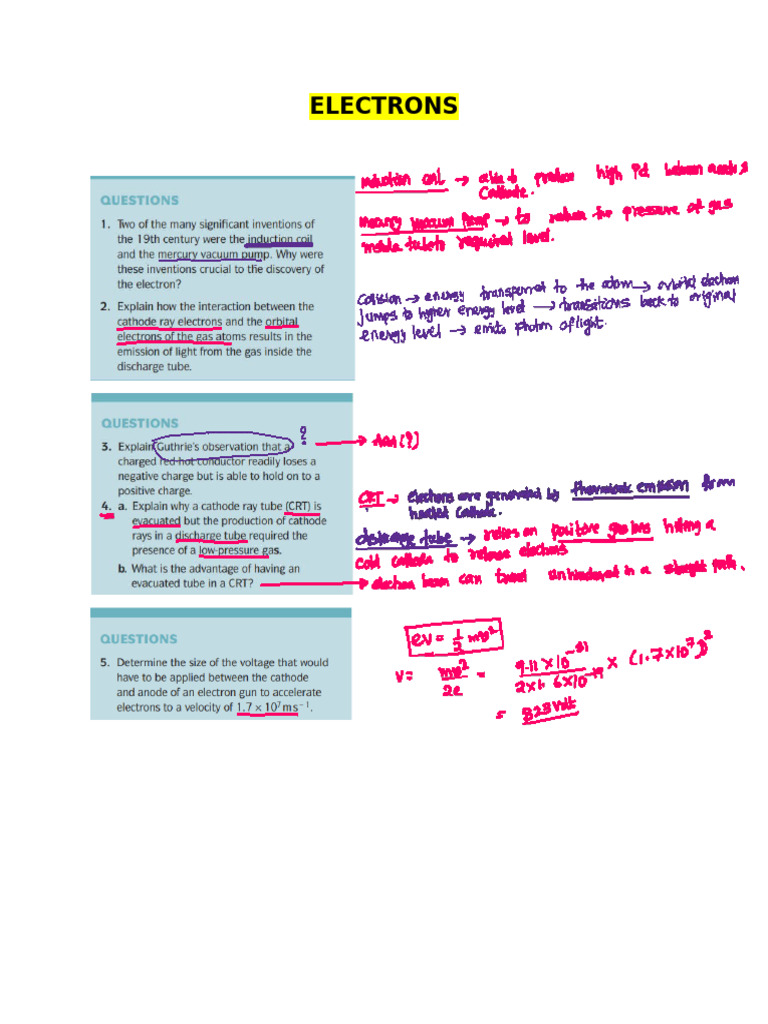 ELECTRONS
QUESTIONS
1. Two of the many significant inventions of
the 19th century were the induction coil
and the mercury vacuum pump. Why were
these inventions crucial to the discovery of
the electron?
2. Explain how the interaction between the
cathode ray electrons and the orbital
electrons of the gas atoms results in the
emission of light from the gas inside the
discharge tube.
induction coil → able to produce high Pd between anode &
Cathode.
mercury vacuum pump → to reduce the pressure of gas
inside tube to required level.
Collision → energy transferred to the atom → orbital electron
jumps to higher energy level → transitions back to original
energy level → emits photon of light.
QUESTIONS
3. Explain Guthrie's observation that a
charged red-hot conductor readily loses a
negative charge but is able to hold on to a
positive charge.
4. a. Explain why a cathode ray tube (CRT) is
evacuated but the production of cathode
rays in a discharge tube required the
presence of a low-pressure gas.
b. What is the advantage of having an
evacuated tube in a CRT?
?
→ (?)
CRT → electrons are generated by thermionic emission from
heated cathode.
discharge tube → relies on positive gas ions hitting a
cold cathode to release electrons
→ electron beam can travel unhindered in a straight path.
QUESTIONS
5. Determine the size of the voltage that would
have to be applied between the cathode
and anode of an electron gun to accelerate
electrons to a velocity of 1.7 × 10⁷ m s⁻¹.
eV = 1/2 mv²
V = mv²/2e = 9.11 × 10⁻³¹/2×1.6×10⁻¹⁹ × (1.7×10⁷)²
= 823 Volt